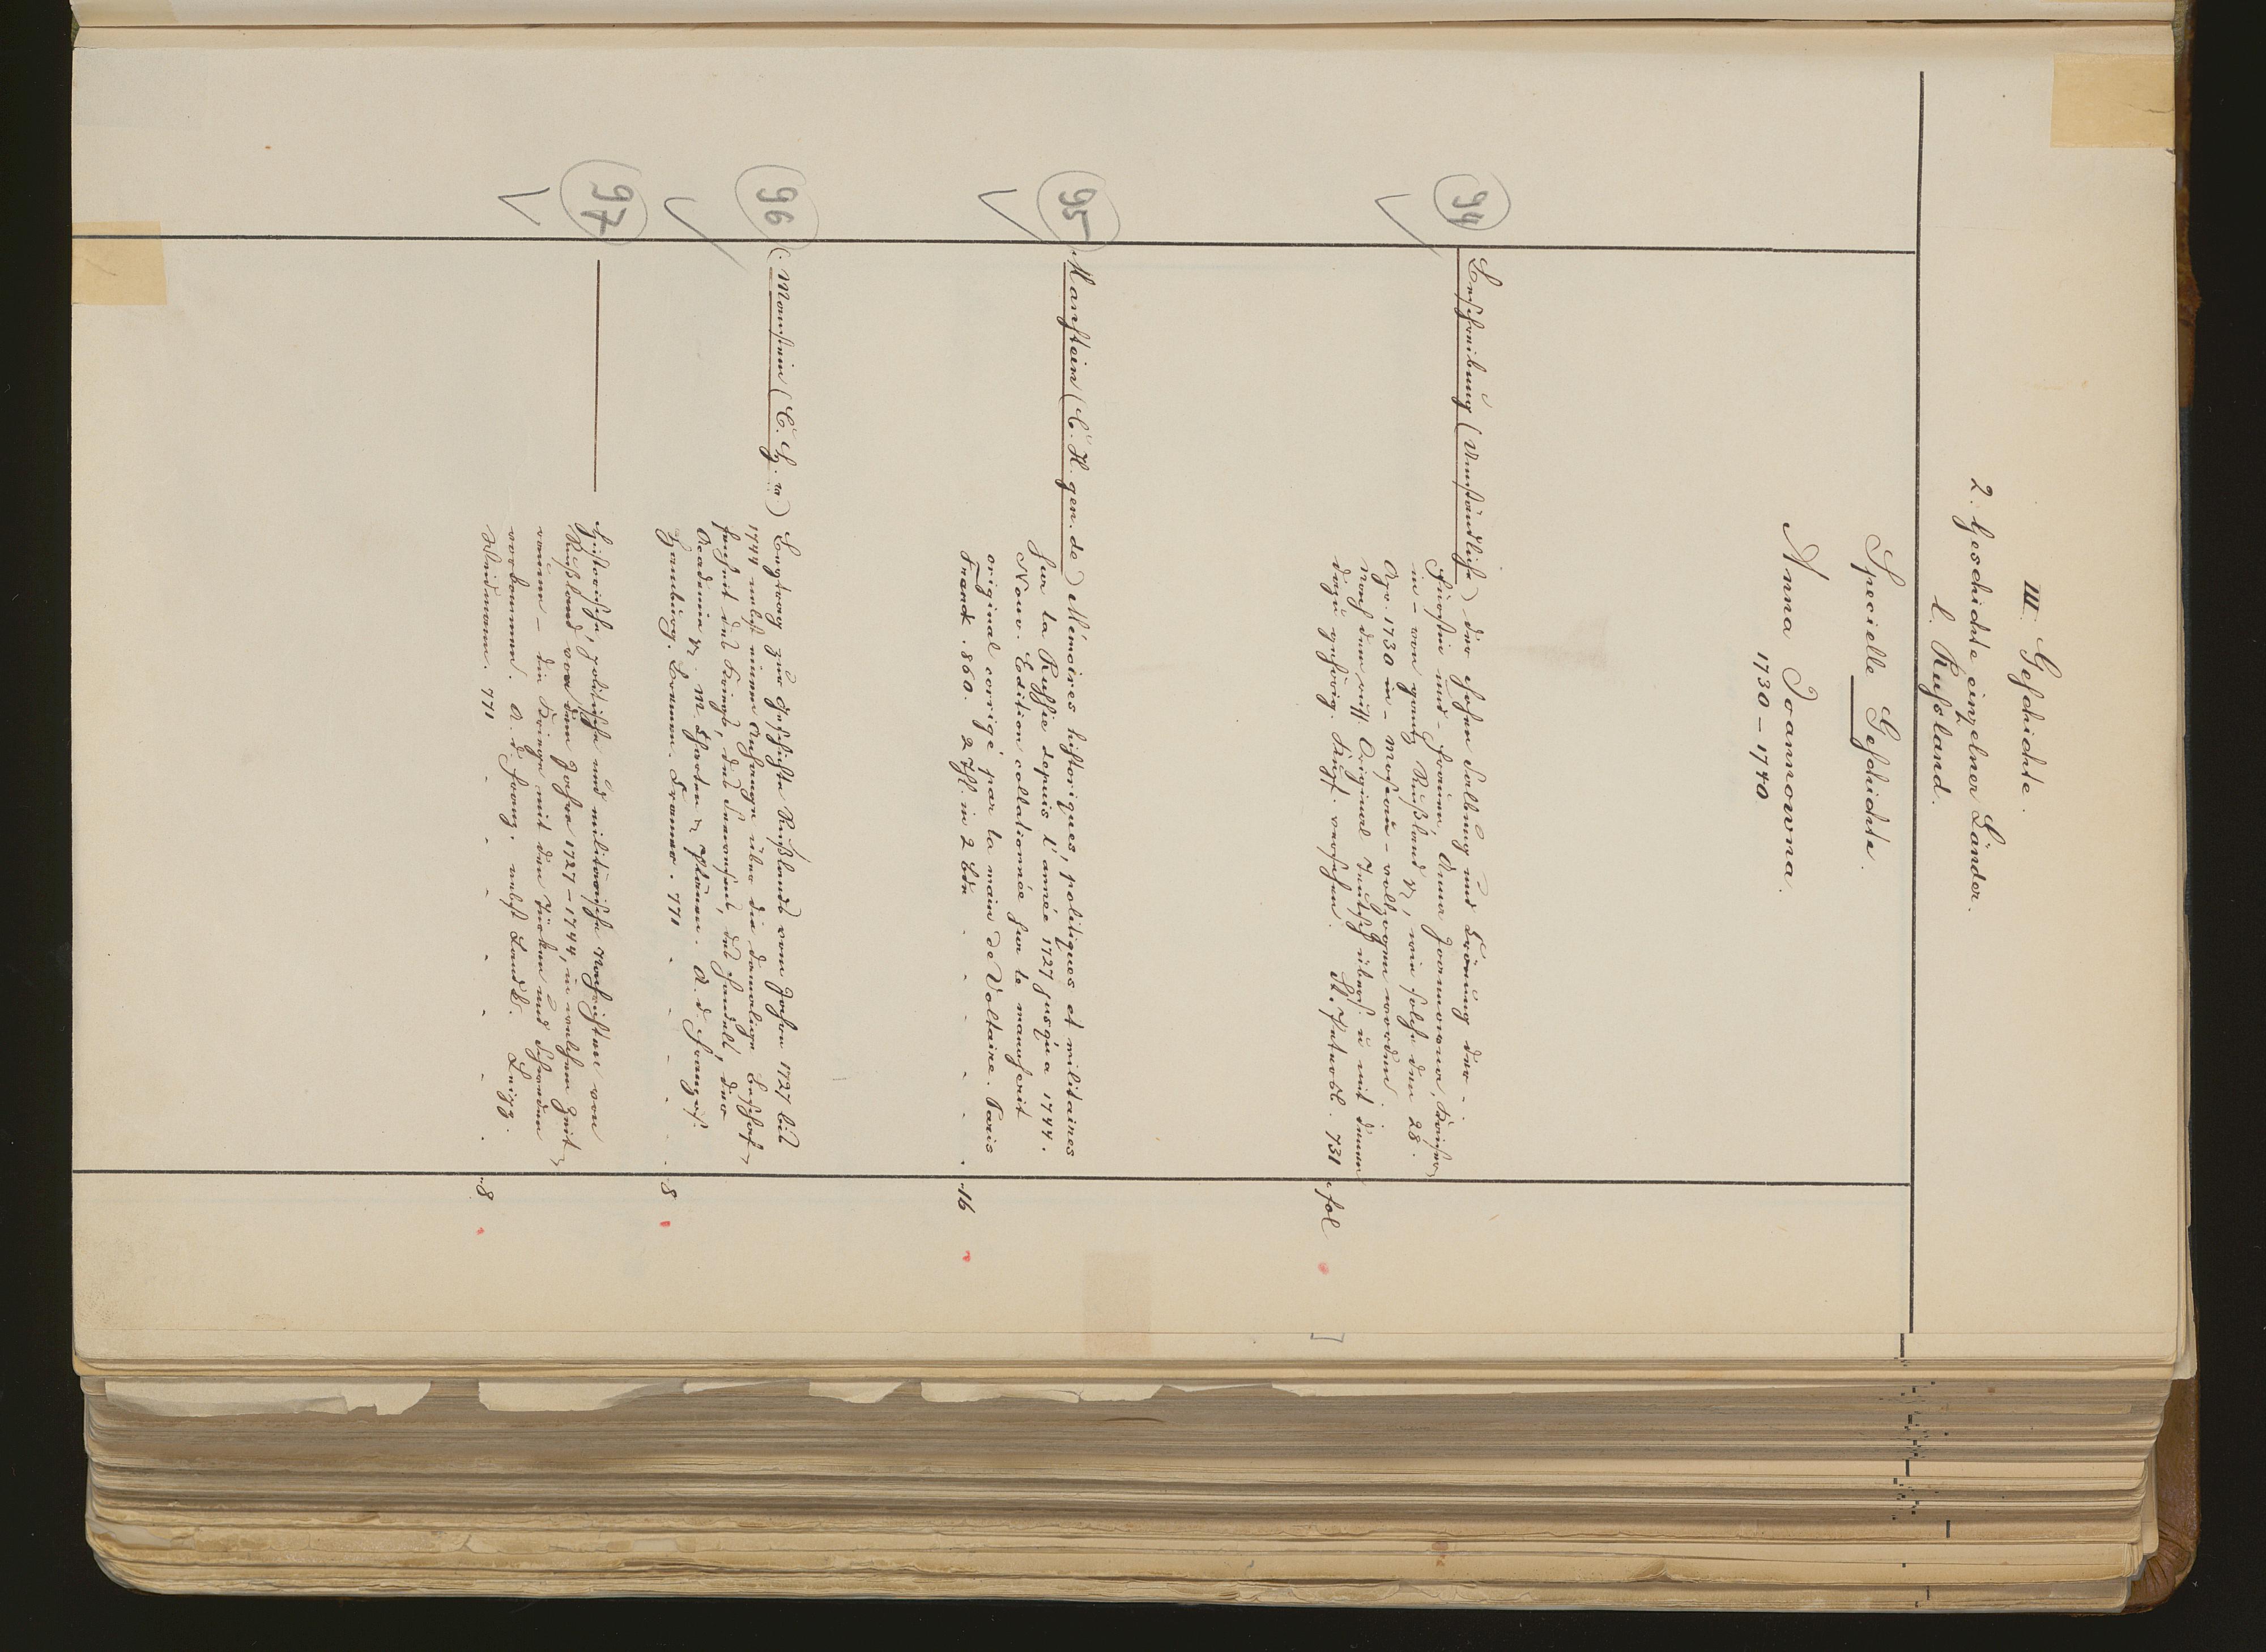 III. Geschichte.
2. Geschichte einzelner Länder.
l. Russland.
Specielle Geschichte.
Anna Joannowna.
1730 – 1740.
94
Beschreibung (Umständliche) der hohen Salbung und Krönung der
Fürstin und – Frauen, Anna Joannowna, Kaiser-
in – von gantz Rußland etc, wie solche den 28.
Apr. 1730 in – Moscau – vollzogen worden.
nach dem russ. Original Teutsch übers. u mit denen
dazu gehörig. Kupf. versehen. St. Petersb. 731 fol
95
Manstein (C. H. gen. de) Mémoires historiques, politiques et militaires
sur la Russie depuis l'année 1727 jusqu'a 1744.
Nouv. Edition collationnée sur le manuscrit
original corrigé par la main de Voltaire. Paris
Franck. 860. 2 Thl. in 2 Bdn . . . . . 16
96
(. Manstein (C. H. v) Beytrag zur Geschichte Rußlands vom Jahre 1727 bis
1744 nebst einem Anhange über die damalige Beschaf-
fenheit des Kriegs, des Seewesens, des Handels, der
Academie etc. M. Charten u Plänen. A. d. Französ.
Hamburg. Bremen. Cramer. 771 . . . . . 8
97
——— Historische, politische und militärische Nachrichten von
Rußland von dem Jahre 1727 – 1744, in welchem Zeit-
raume – die Kriege mit den Türken und Schweden
vorkommen. A. d. Franz. nebst Landk. Leipz.
Weidmann. 771 . . . . . 8